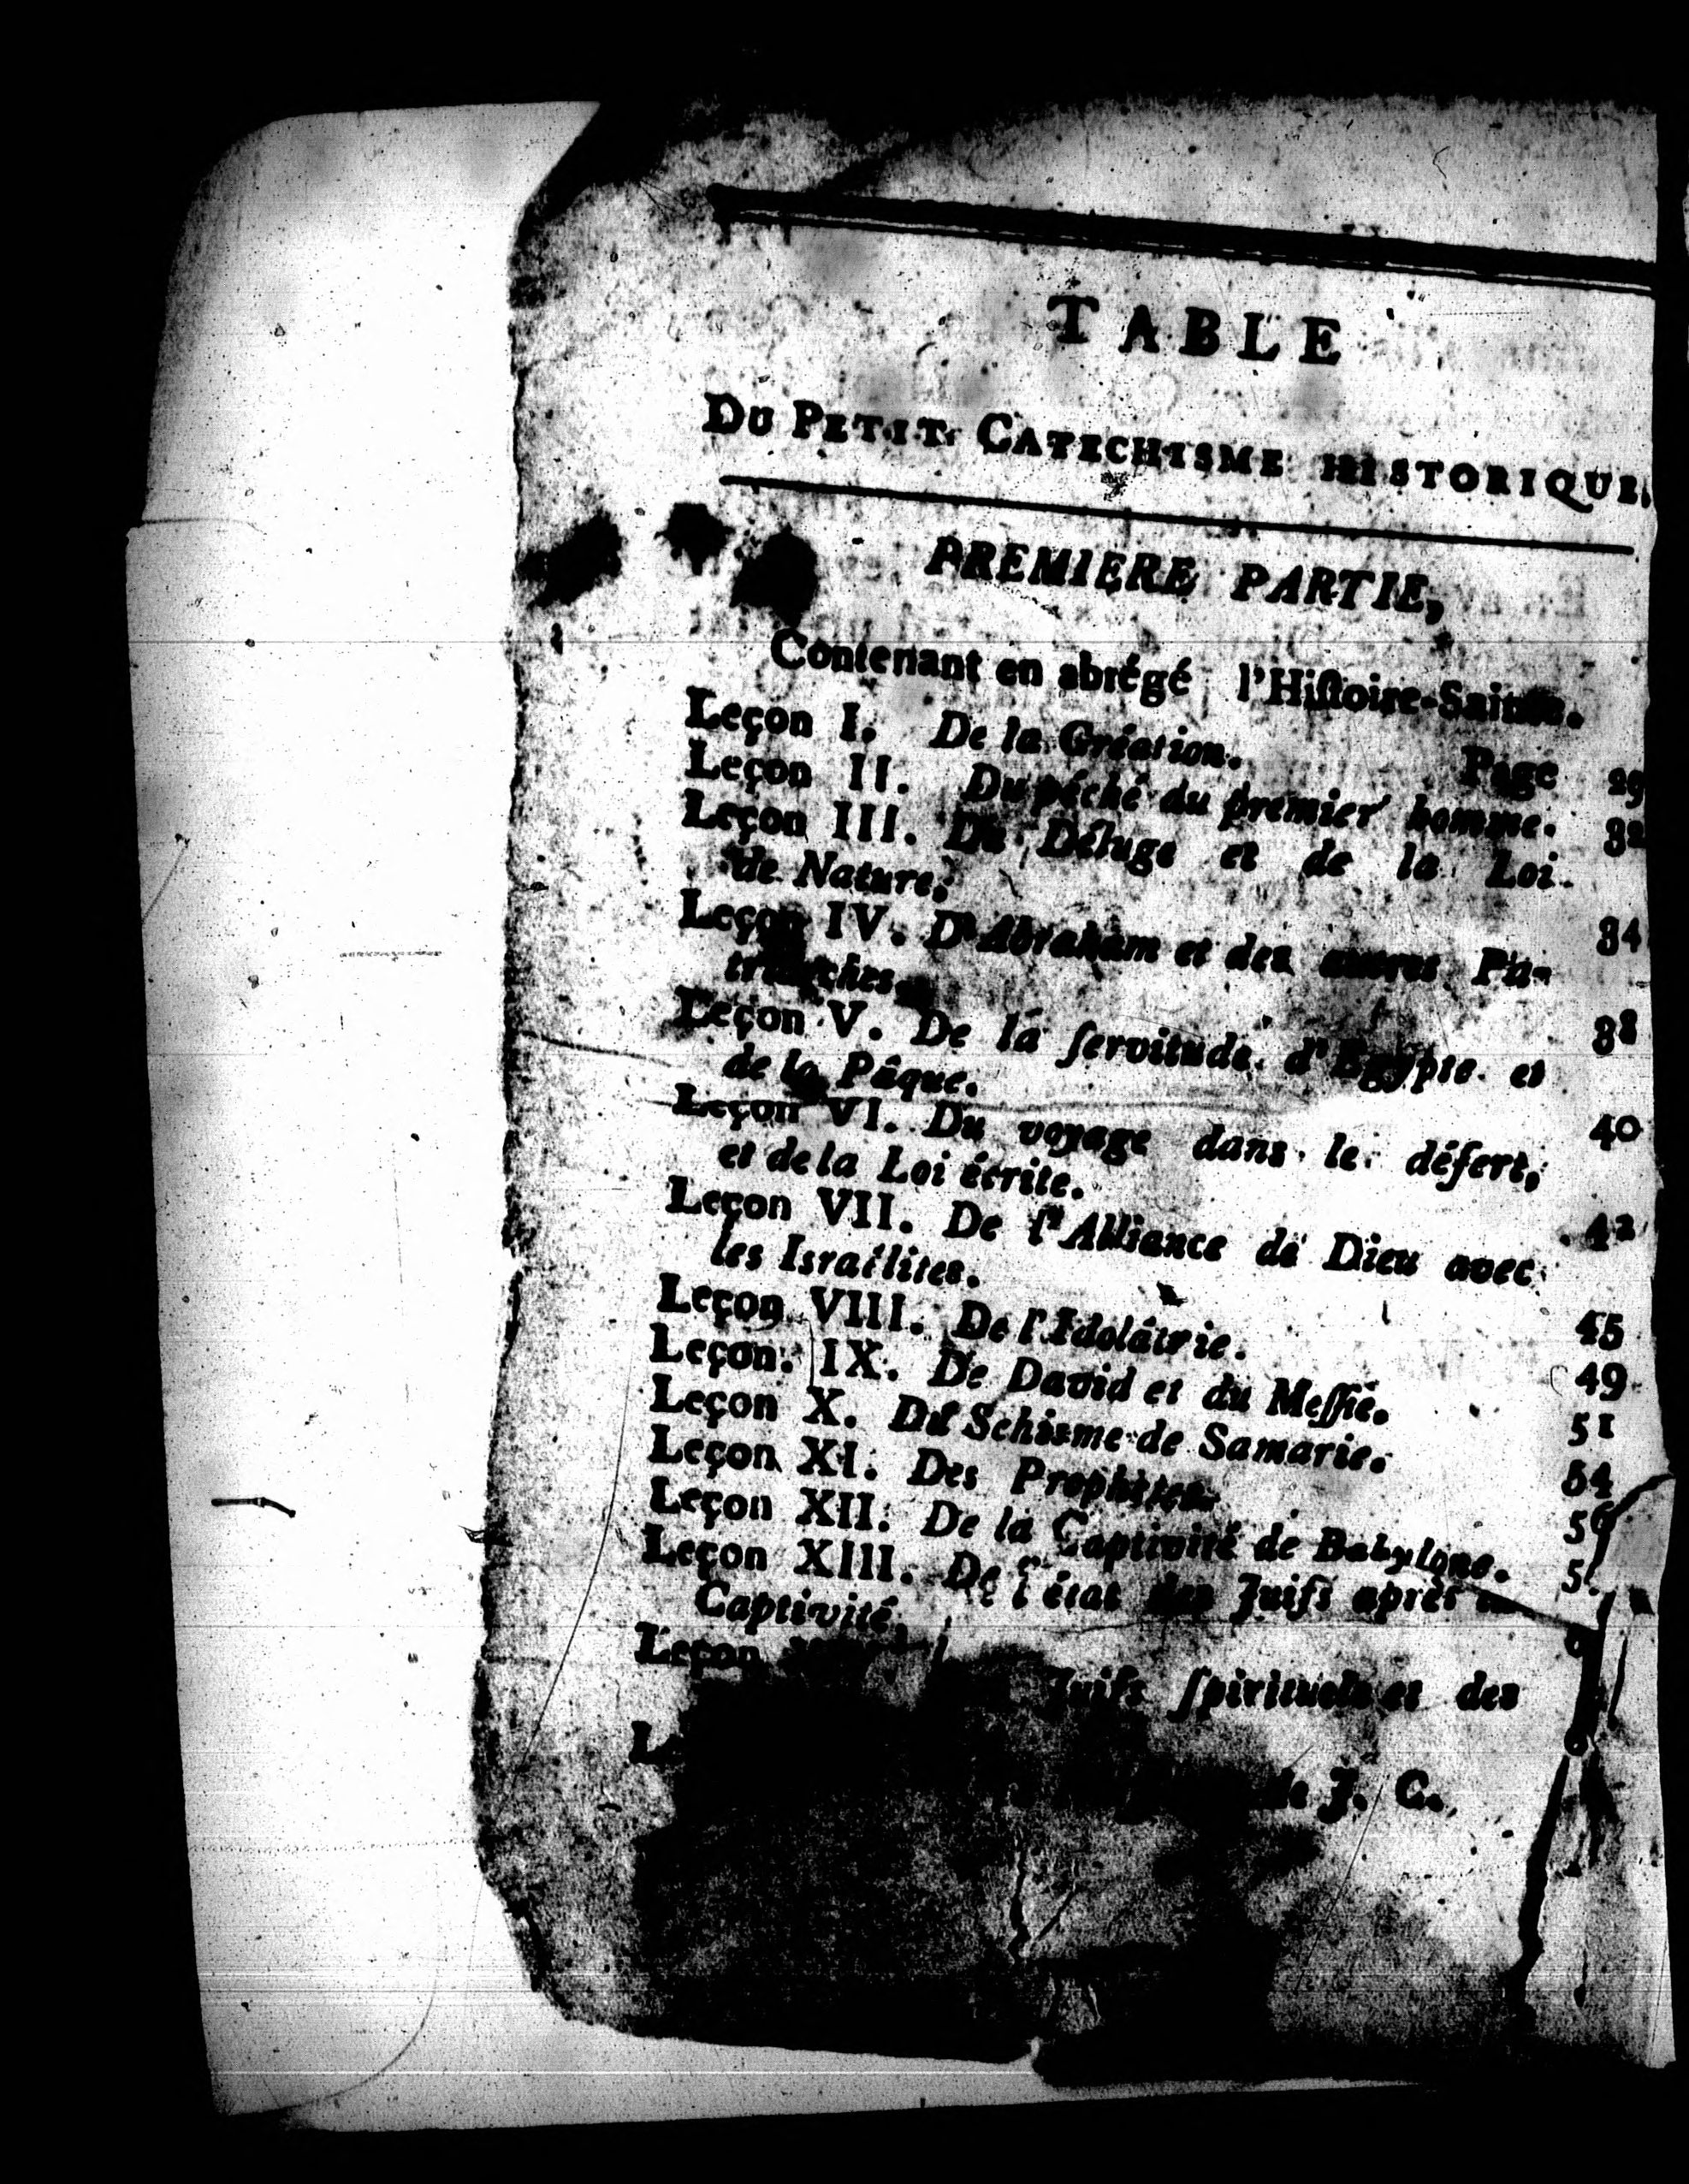 TABLE
DU PETIT CATECHISME HISTORIQUE.
PREMIERE PARTIE,
Contenant en abrégé l'Hiſtoire-Sainte.
Leçon I. De la Création. Page 29
Leçon II. Du péché du premier homme. 32
Leçon III. Du Déluge et de la Loi
de Nature. 34
Leçon IV. D'Abraham et des autres Pa-
triarches. 38
Leçon V. De la ſervitude d'Egypte et
de la Pâque. 40
Leçon VI. Du voyage dans le déſert,
et de la Loi écrite. 42
Leçon VII. De l'Alliance de Dieu avec
les Israélites. 45
Leçon VIII. De l'Idolâtrie. 49
Leçon IX. De David et du Meſſie. 51
Leçon X. Du Schisme de Samarie. 54
Leçon XI. Des Prophètes. 56
Leçon XII. De la Captivité de Babylone. 5
Leçon XIII. De l'état des Juifs après la
Captivité.
Leçon Juifs ſpirituels et des
Le
de J. C.